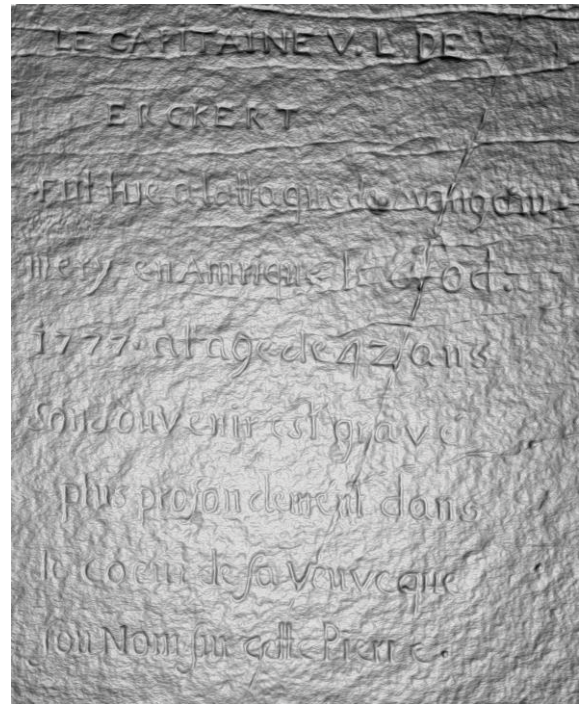 LE CAPITAINE V. L. DE
ERCKERT
Fut tue a lattaque de
mery en Amrique le 6 od.
1777. at age de 42 ans
Son souvenir est grave
plus profondement dans
le coeur de sa Veuve que
son Nom sur cette Pierre.